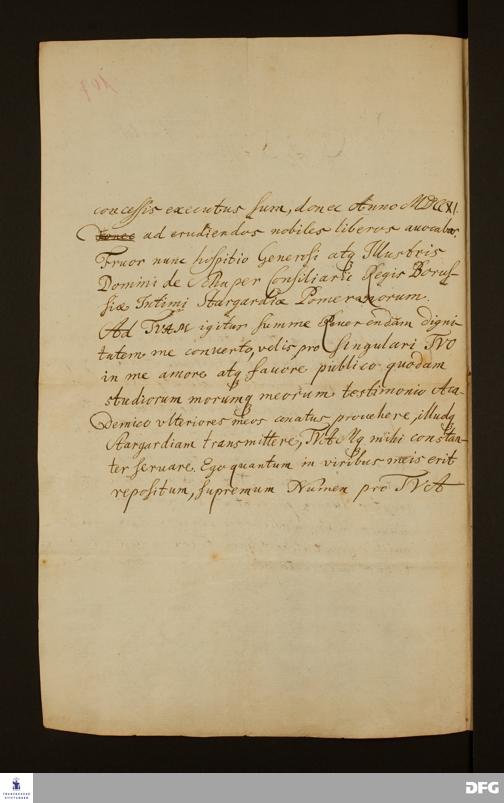 concessis executus sum, donec Anno MDCCXI.
donec ad erudiendos nobiles liberos auocabar
Fruor nunc hospitio Generosi atq Illustris
Domini de Consiliarii Regis Borus-
siæ Intimi Stargardiæ Pomeranorum.
Ad TVAM igitur summe Reuerendam digni-
tatem me conuerto, velis pro singulari TVO
in me amore atq fauore publico quodam
studiorum morumq meorum testimonio Aca-
demico vlteriores meos conatus prouehere, illudq
Stargardiam transmittere, TVAMq mihi constan-
ter seruare. Ego quantum in viribus meis erit
repositum, supremum Numen pro TVA
DFG